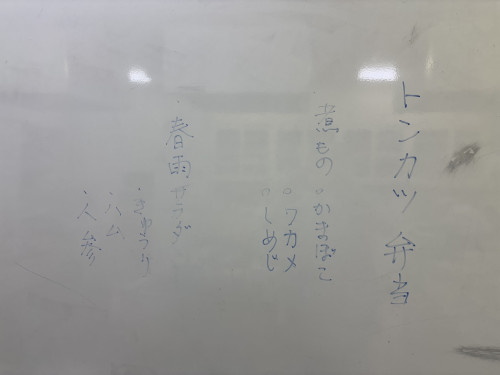 トンカツ弁当
・煮もの
○かまぼこ
○ワカメ
○しめじ
・春雨サラダ
・きゅうり
・ハム
・人参